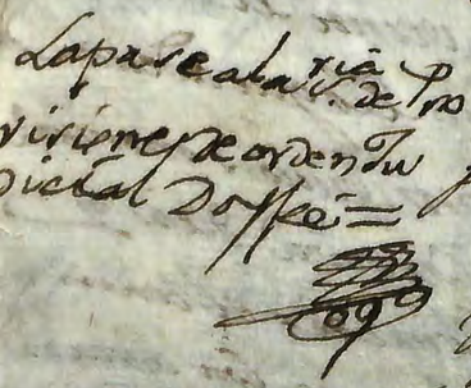 Lapase a la v.ria de Pro
visiones de orden Ju
dicial Doffeé =